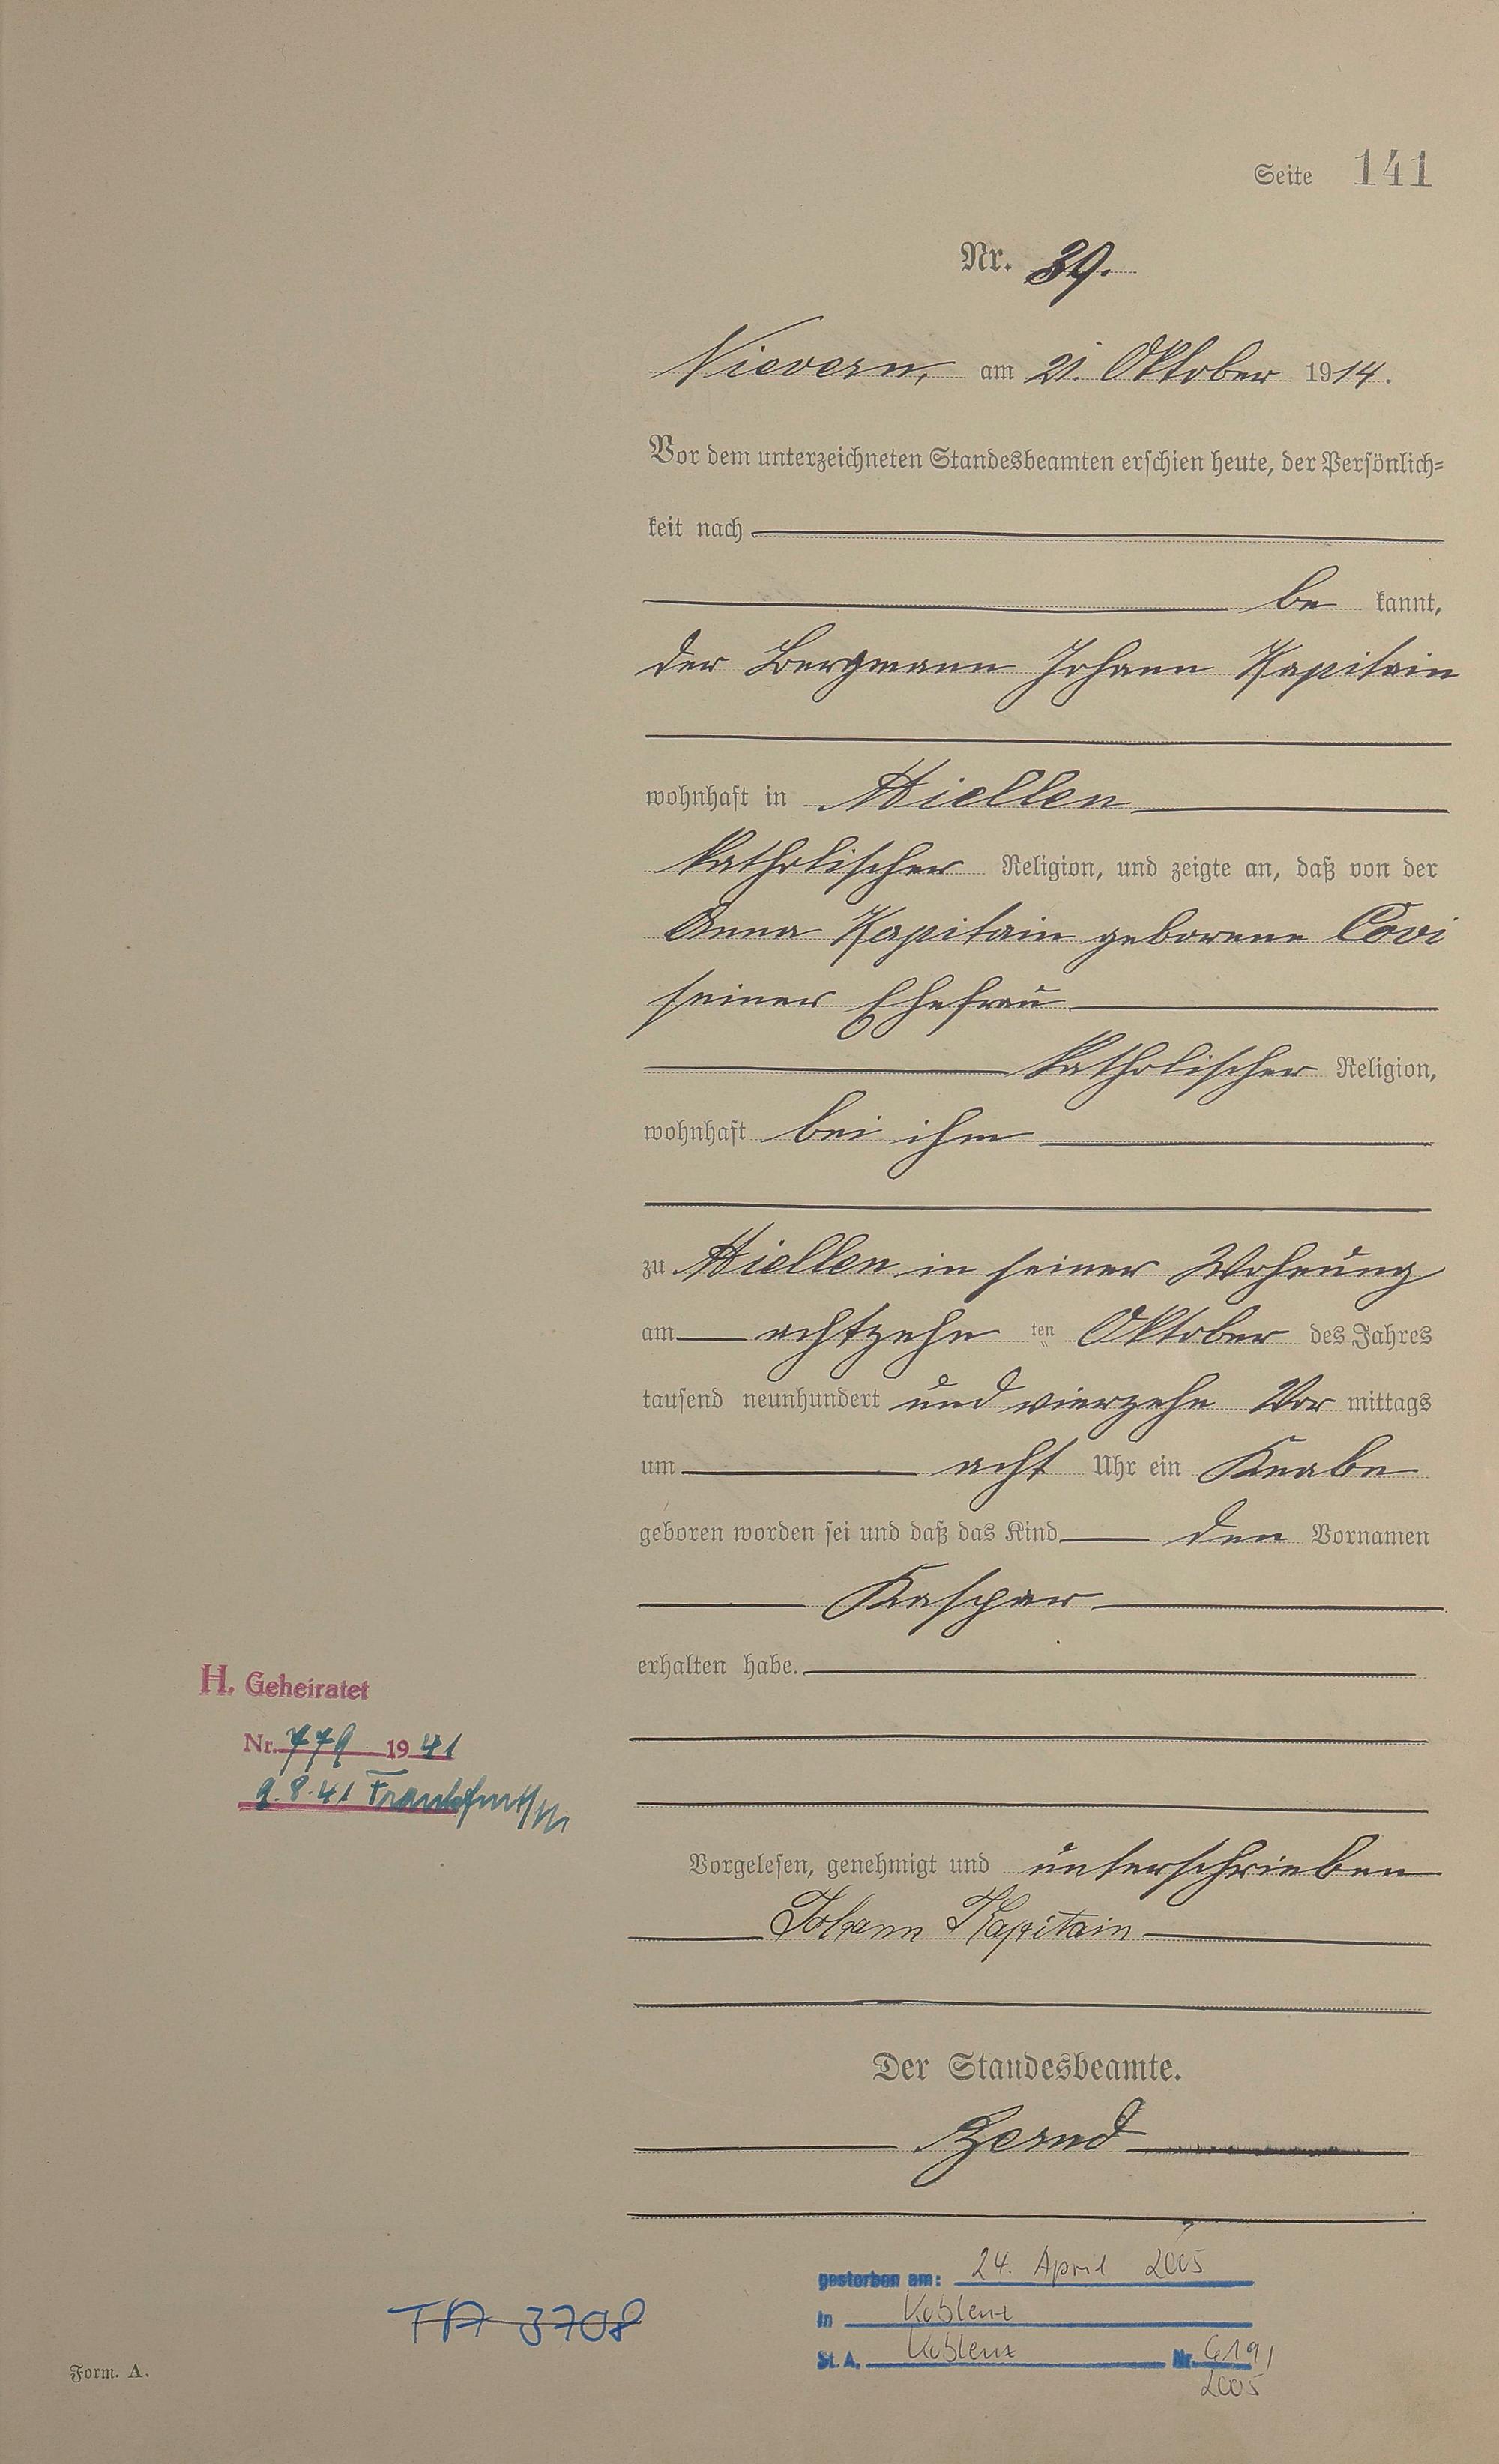 Seite 141
Nr. 39.
Nievern, am 21. Oktober 1914.
Vor dem unterzeichneten Standesbeamten erschien heute, der Persönlich-
keit nach
be kannt,
der Bergmann Johann Kapitain
wohnhaft in Miellen
katholischer Religion, und zeigte an, daß von der
Anna Kapitain geborene Covi
seiner Ehefrau
katholischer Religion,
wohnhaft bei ihm
zu Miellen in seiner Wohnung
am achtzehn ten Oktober des Jahres
tausend neunhundert und vierzehn Vor mittags
um acht Uhr ein Knabe
geboren worden sei und daß das Kind den Vornamen
Kaspar
erhalten habe.
H. Geheiratet
Nr. 779 1941
9.8.41 Frankfurt/M
Vorgelesen, genehmigt und unterschrieben
Johann Kapitain
Der Standesbeamte.
gestorben am: 24. April 2005
in Koblenz
St. A. Koblenz Nr. 619/
2005
TA 3708
Form. A.